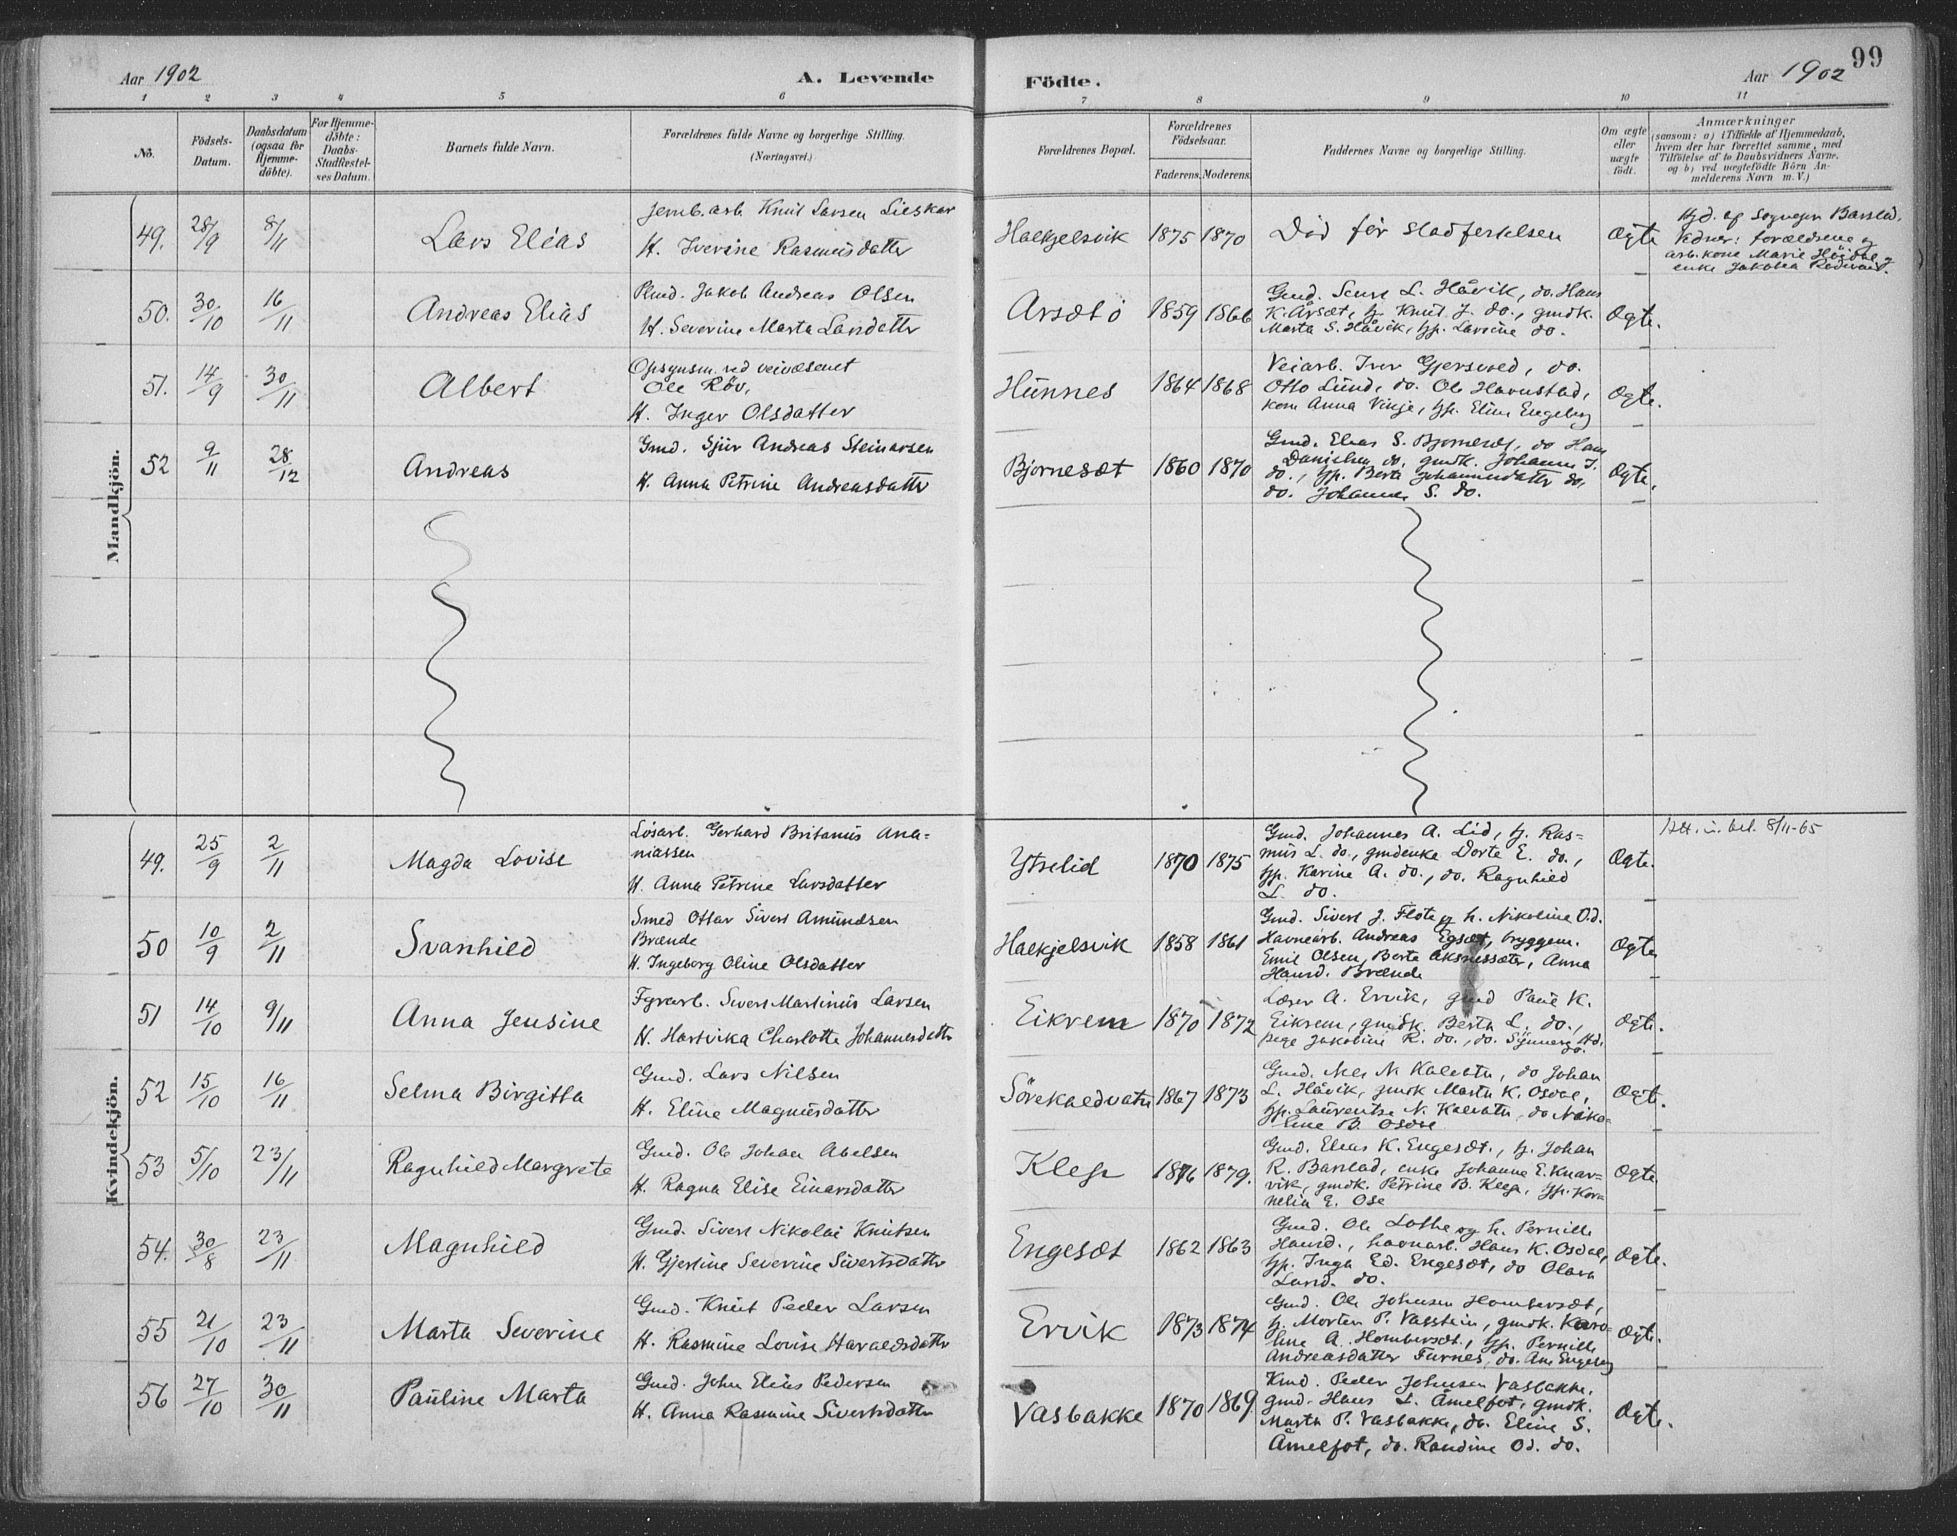 99
Aar 1902
A. Levende
Födte.
Aar 1902
1 2 3 4 5 6 7 8 9 10 11
No.
Födsels-
Datum.
Daabsdatum
(ogsaa for
Hjemme-
döbte).
For Hjemme-
döbte:
Daabs-
Stadfæstel-
ses Datum.
Barnets fulde Navn.
Forældrenes fulde Navne og borgerlige Stilling.
(Næringsvei.)
Forældrenes Bopæl.
Forældrenes
Födselsaar.
Faderens. Moderens.
Faddernes Navne og borgerlige Stilling.
Om ægte
eller
uægte
födt.
Anmærkninger
(saasom: a) i Tilfælde af Hjemmedaab,
hvem der har forrettet samme, med
Tilföielse af to Daabsvidners Navne.
og b) ved uægtefödte Börn An-
melderens Navn m. V.)
Mandkjön.
49. 28/9 8/11 Lars Elias
Jernb. arb. Knut Larsen Lieskar
H. Iverine Rasmusdatter
Haekjelsvik 1875 1870
Död för stadfestelsen
Ægte
Hjd. af Sognepr. Barstad.
Vidner: forældrene og
arb. kone Marie
enke Jakobea
50. 30/10 16/11 Andreas Elias
Pknd. Jakob Andreas Olsen
H. Severine Marta Larsdatter
Arsætö 1859 1866
Gmd. L. Håvik, do. Hans
K. Årsæt, Knut J. do., gmdk.
Marta S. Håvik, pp. Larsine do.
Ægte.
51. 14/9 30/11 Albert
Opsynsm. ved veivæsenet
Ole Röv,
H. Inger Olsdatter
Hunnes 1864 1868
Veiarb. Iver Gjersvold, do.
Otto Lund, do. Ole Havnstad,
kone Anna Vinje, pp. Eline Engeberg
Ægte.
52 9/11 28/12 Andreas
Gmd. Sjur Andreas Steinarsen
H. Anna Petrine Andreasdatter
Bjornesæt 1860 1870
Gmd. Elias S. Bjornesæt, do Hans
Danielsen do, gmdk. Johanne J.
do., pp. Berte Johannesdatter do,
do. Johanne S. do.
Ægte.
Kvindekjön.
49. 25/9 2/11 Magda Lovise
Lösarb. Gerhard Britanus Ana-
niassen
H. Anna Petrine Larsdatter
Ytrelid 1870 1875
Gmd. Johannes A. Lid, Ras-
mus L. do., gmdenke Dorte E. do.,
pp. Karine A. do., do. Ragnhild
L. do.
Ægte.
Att. u. bet. 8/11-65
50 10/9 2/11 Svanhild
Smed Ottar Sivert Amundsen
Brænde
H. Ingeborg Oline Olsdatter
Haekjelsvik 1858 1861
Gmd. Sivert J. Flöte og h. Nikoline O.d.
Havnearb. Andreas Egsæt, bryggem.
Emil Olsen, Berte Aksnessæter, Anna
Hansd. Brænde
Ægte
51 14/10 9/11 Anna Jensine
Fyrarb. Sivert Martinus Larsen
H. Hartvika Charlotte Johannesdatter
Eikrem 1870 1872
Lærer A. Ervik, gmd Paul K.
Eikrem, gmdk. Berta L. do.,
pige Jakobine R. do., do.
do.
Ægte.
52 15/10 16/11 Selma Birgitta
Gmd. Lars Nilsen
H. Eline Magnusdatter
Sörekaldvatn 1867 1873
Gmd. Nils N. Kalvatn, do Johan
L. Håvik, gmdk Marta K. Osdal,
pp. Laurentse N. Kalvatn, do Niko-
line B. Osdal
Ægte.
53 5/10 23/11 Ragnhild Margrete
Gmd. Ole Johan Abelsen
H. Ragna Elise Einarsdatter
Klep 1876 1879.
Gmd. Elias K. Engesæt., Johan
R. Barstad, enke Johanne E. Knar-
vik, gmdk. Petrine B. Klep, pp. Kor-
nelia E. Ose
Ægte.
54. 30/8 23/11 Magnhild
Gmd. Sivert Nikolai Knutsen
H. Gjertine Severine Sivertsdatter
Engesæt 1862 1863
Gmd. Ole Lothe og h. Pernille
Hansd., havnarb. Hans K. Osdal,
pp. Inga Ed. Engesæt, do Olava
Lund. do.
Ægte.
55 21/10 23/11 Marta Severine
Gmd. Knut Peder Larsen
H. Rasmine Lovise Haraldsdatter
Ervik 1873 1874
Gmd. Ole Johnsen Hombersæt,
Morten P. Vasstein, gmdk. Karo-
line A. Hombersæt., pp. Pernille
Andreasdatter Furnes, do. Ane
Ægte.
56 27/10 30/11 Pauline Marta
Gmd. John Elias Pedersen
H. Anna Rasmine Sivertsdatter
Vasbakke 1870 1869
Kmd. Peder Johnsen Vasbakke,
gmd. Hans L. Åmelfot, gmdk.
Marta P. Vasbakke, do. Eline S.
Åmelfot, do. Randine Od. do.
Ægte.